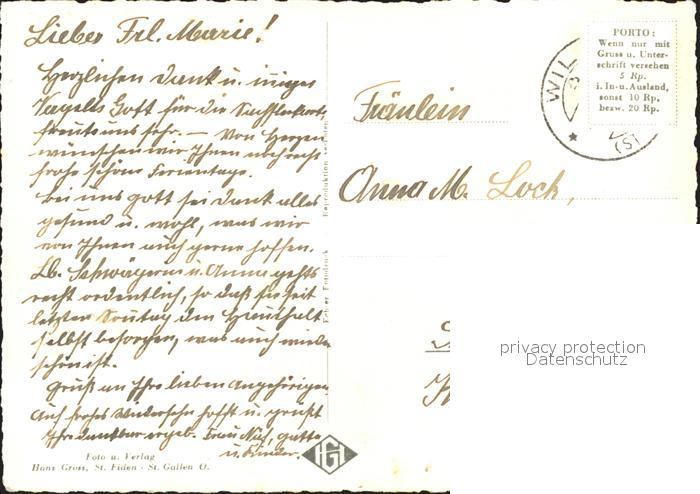 Lieber Frl. Marie!
Herzlichen Dank u. inniges
Vergelts Gott für die
freute uns sehr. — Von Herzen
wünschen wir Ihnen noch recht
frohe schöne Ferientage.
Bei uns gott sei Dank alles
gesund u. wohl, was wir
von Ihnen auch gerne hoffen.
Lb. Schwägerin u. Anna gehts
recht ordentlich, so daß sie seit
letzten Sonntag den Haushalt
selbst besorgen, was auch wieder
schön ist.
Gruß an Ihre lieben Angehörigen
Auf frohes Wiedersehn hofft u. grüßt
Ihre dankbar ergeb. Frau
u. Kinder.
Foto u. Verlag
Hans Gross, St. Fiden - St. Gallen O.
HG
Echter Fotodruck
Reproduktion
Fräulein
Anna M. Loch,
WIL
(St
PORTO:
Wenn nur mit
Gruss u. Unter-
schrift versehen
5 Rp.
i. In- u. Ausland,
sonst 10 Rp.
bezw. 20 Rp.
privacy protection
Datenschutz